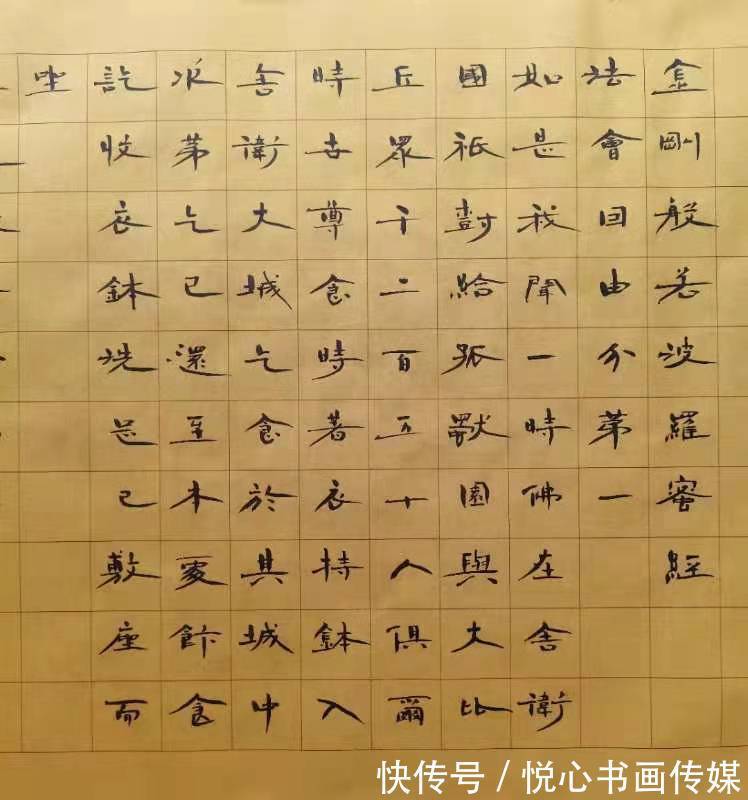 金剛般若波羅蜜經
法會因由分第一
如是我聞一時佛在舍衛
國祇樹給孤獨園與大比
丘眾千二百五十人俱爾
時世尊食時著衣持鉢入
舍衛大城乞食於其城中
次第乞已還至本處飯食
訖收衣鉢洗足已敷座而
坐
快传号/悦心书画传媒